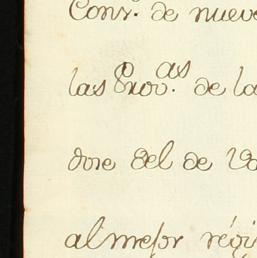 Cons.r de nuevo
las Prov.as de la
dose del de Va
al mejor régi